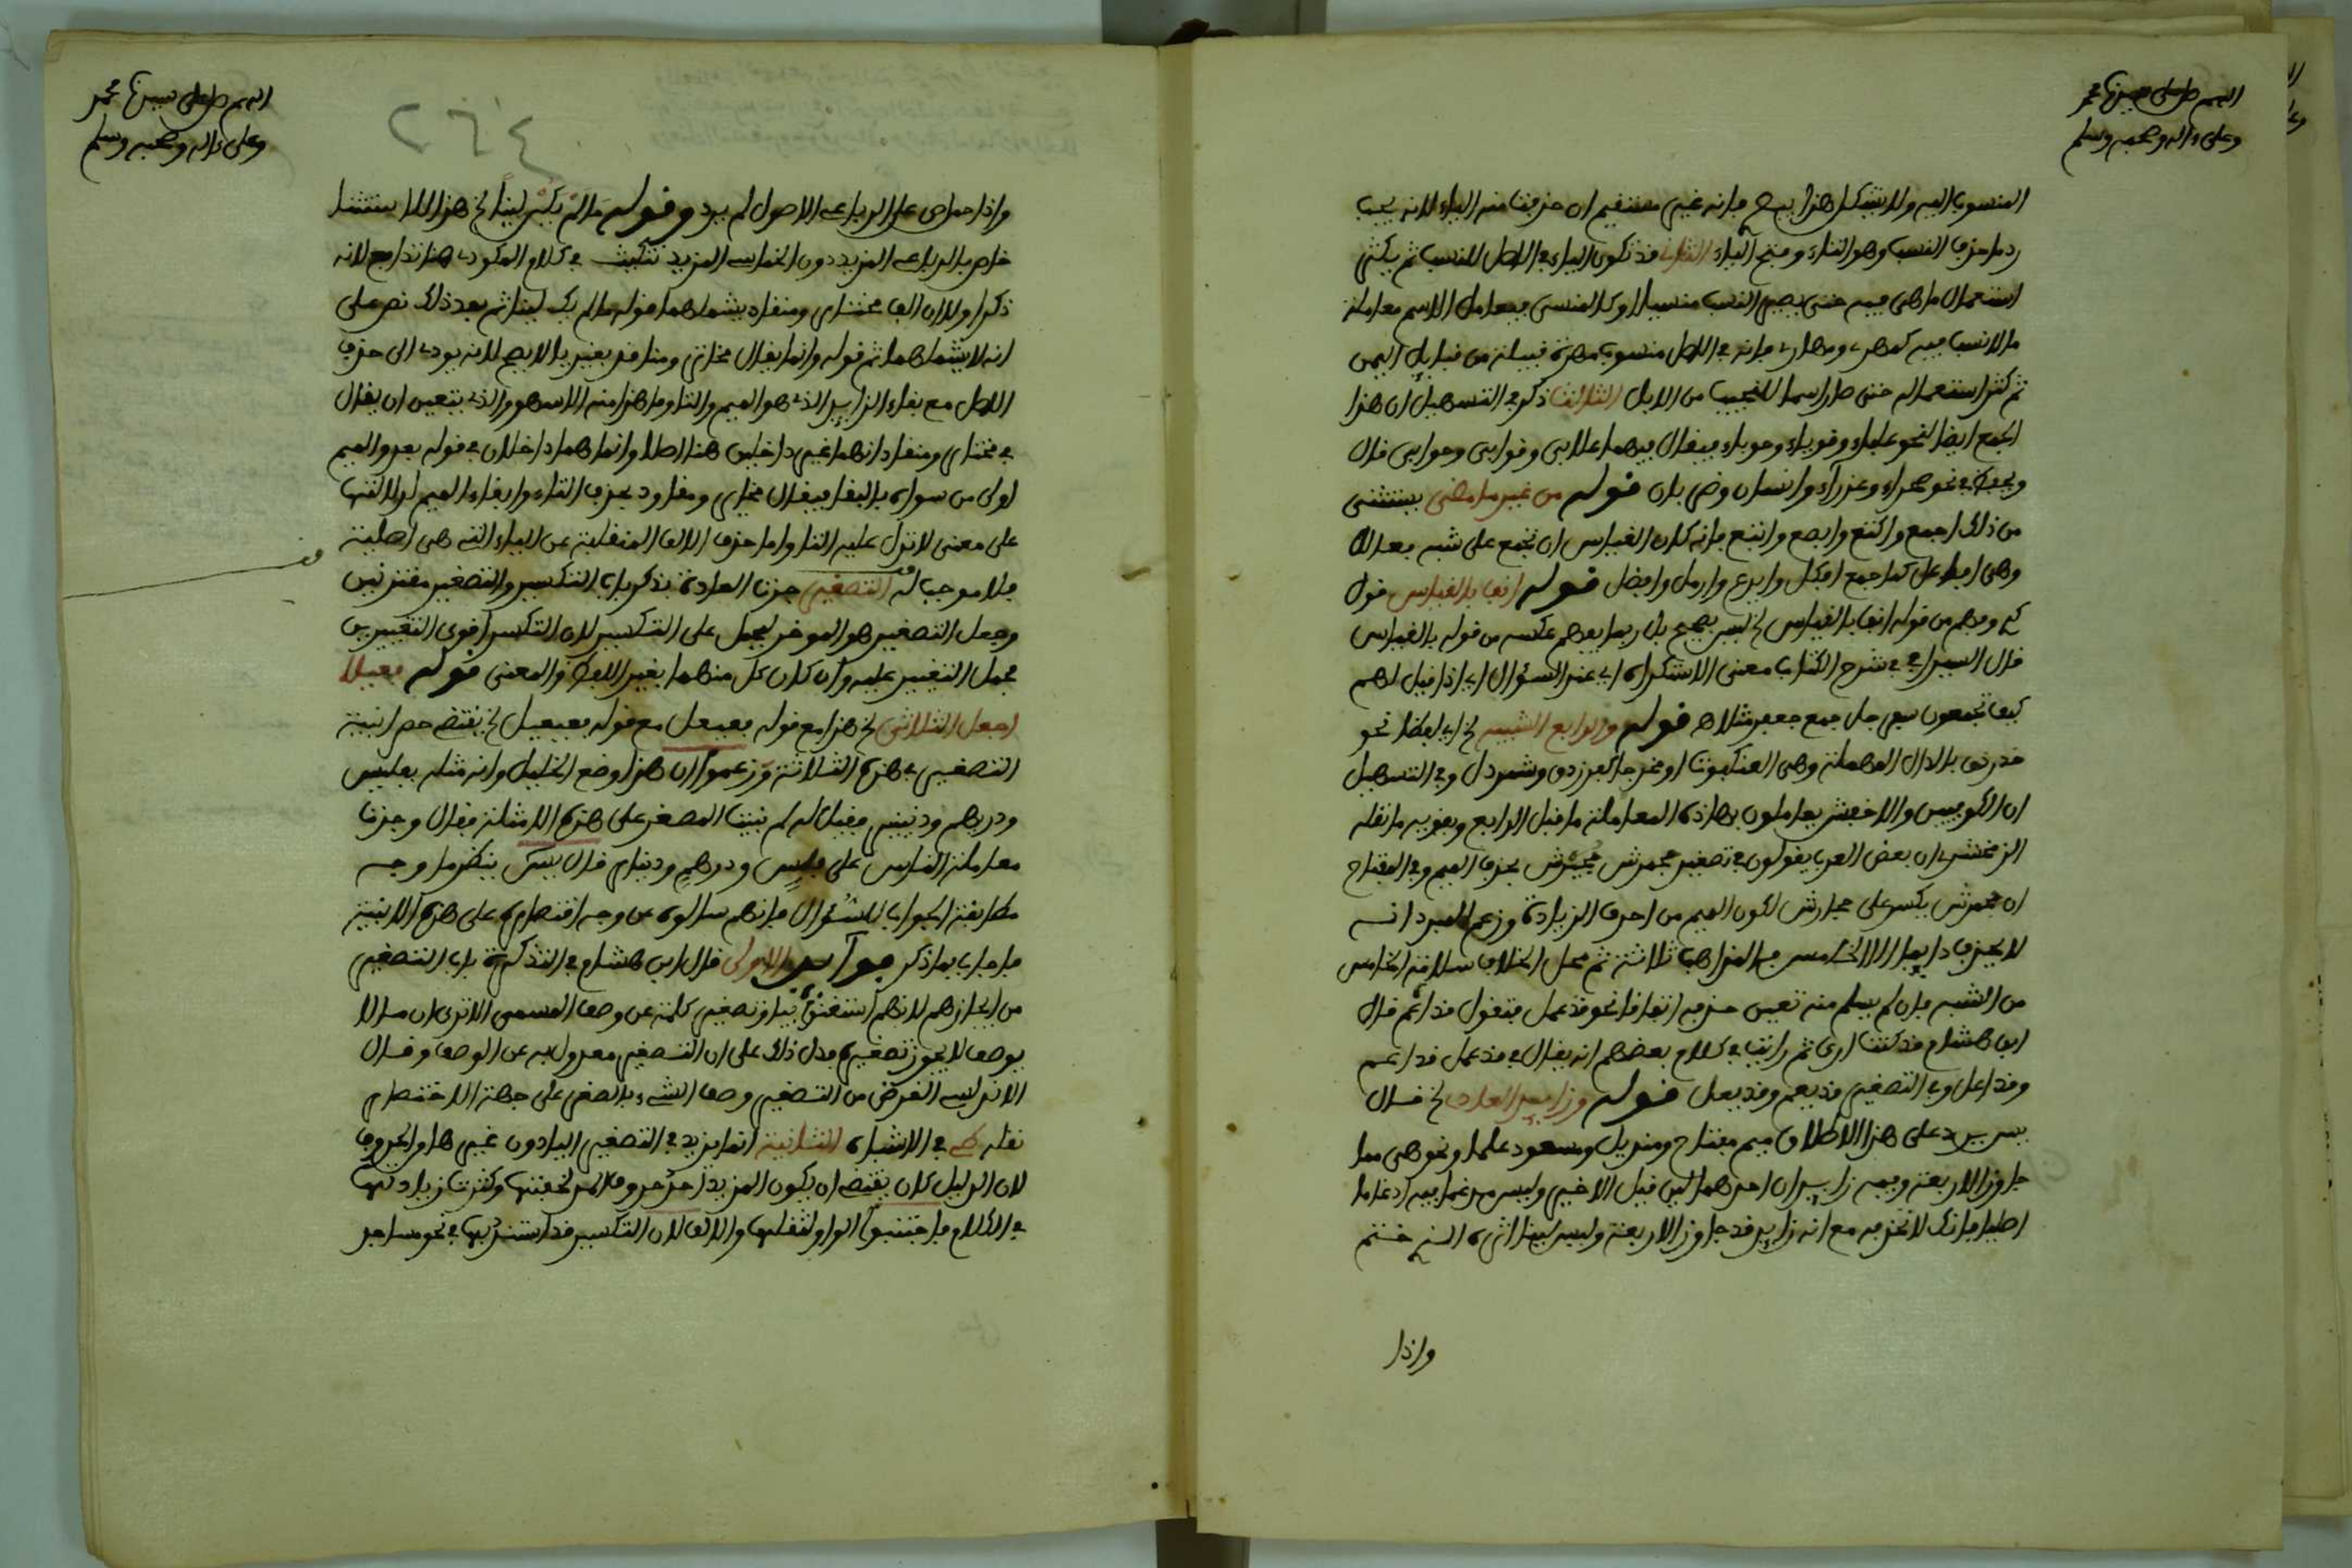 اللهم صل على سيدنا محمد
وعلى ءاله وصحبه وسلم
المنسوب اليه ولا يشكل هذا فانه غير مستقيم ان حذفت منه الياء لانه يجب
رد ما حذف النسب وهو التاء وفتح الياء الثانى قد تكون الياء في الاصل للنسب ثم يكثر
استعمال ما هي فيه حتى يصير النسب منسيا او كالمنسي فيعامل الاسم معاملة
ما لا نسب فيه كمهري ومهاري فانه في الاصل منسوب لمهرة قبيلة من قبايل اليمن
ثم كثر استعماله حتى صار اسما للنجيب من الابل الثالث ذكر في التسهيل ان هذا
الجمع ايضا لنحو علباء وقوباء وحوباء فيقال فيها علابي وقوابي وحوابي قال
ويحفظ في نحو صحراء وعذراء وانسان وضربان قوله من غير ما مضى يستثنى
من ذلك اجمع واكتع وابصع وابتع فانه كان القياس ان تجمع على شبه فعالل
وهي افاعل كما جمع افكل وايدع وارمل وافضل قوله انف بالقياس قول
كه وفهم من قوله انف بالقياس الخ ليس بصحيح بل ربما يفهم عكسه من قوله بالقياس
قال السيرافي في شرح الكتاب معنى الاستكراه اي عند السؤال اي اذا قيل لهم
كيف تجمعون سفرجل جمع جعفر مثلا هـ قوله والرابع الشبيه الخ اي لفظا نحو
خدرنق بالدال المهملة وهي العنكبوت او مخرجا كفرزدق وشمردل وفي التسهيل
ان الكوفيين والاخفش يعاملون بهاذه المعاملة ما قبل الرابع ويقويه ما نقله
الزمخشري ان بعض العرب يقولون في تصغير جحمرش جحيرش بحذف الميم وفي المفتاح
ان جحمرش يكسر على جحارش لكون الميم من احرف الزيادة وزعم المبرد انه
لا يحذف دايما الا الخامس فالمذاهب ثلاثة ثم محل الخلاف سلامة الخامس
من الشبه فان لم يسلم منه تعين حذفه اتفاقا نحو قذعمل فتقول قذاعم قال
ابن هشام قد كنت ارى ثم رايت في كلام بعضهم انه يقال في قذعمل قذاعم
وقذاعل وفي التصغير قذيعم وقذيعل قوله وزايد العادى الخ قال
يس يرد على هذا الاطلاق ميم مفتاح ومنديل ومسعود علما ونحوهن مما
جاوز الاربعة وفيه زايدان احدهما لين قبل الاخير وليس مدغما فيه ادغاما
اصليا فانك لا تحذفه مع انه زايد قد جاوز الاربعة وليس لينا اثره الذ ختم
واذا
اللهم صل على سيدنا محمد
وعلى ءاله وصحبه وسلم
٢٦٤
واذا حمل على الرباعي الاصول لم يرد وقوله ما لم يك لينا الخ هذا الاستثنا
خاص بالرباعي المزيد دون الخماسي المزيد تنكيت في كلام المكودي هنا تدافع لانه
ذكر اولا ان الف مختار ومنقاد يشملهما قوله ما لم يك لينا ثم بعد ذلك نص على
انه لا يشملهما ثم قوله وانما يقال مخاتر ومناقد بغير يا لا يصح لانه يودي الى حذف
الاصل مع بقاء الزايد الذي هو الميم والتا وما هذا منه الا سهو والذي يتعين ان يقال
في مختار ومنقاد انهما غير داخلين هنا اصلا وانما هما داخلان في قوله بعد والميم
اولى من سواه بالبقا فيقال مخاير ومقاود بحذف التاء وابقاء الميم لدلالتها
على معنى لا تدل عليه التا واما حذف الالف المنقلبة عن الياء التي هي اصلية
فلا موجب له التصغير جرت العادة بذكر باب التكسير والتصغير مقترنين
وجعل التصغير هو الموخر ليحمل على التكسير لان التكسير اقوى التغييرين
فحمل التغيير عليه وان كان كل منهما يغير اللفظ والمعنى قوله فعيلا
اجعل الثلاثي الخ هذا مع قوله فعيعل مع قوله فعيعيل الخ يقتضي حصر ابنية
التصغير في هذه الثلاثة وزعموا ان هذا وضع الخليل وانه مثله بفليس
ودريهم ودنينير فقيل له لم بنيت المصغر على هذه الامثلة فقال وجدت
معاملة الناس على فلس ودرهم ودينار قال يس ينظر ما وجه
مطابقة الجواب للسؤال فانهم سالوه عن وجه اقتصاره على هذه الابنية
فاجاب بما ذكر فوائد الاولى قال ابن هشام في التذكرة باب التصغير
من ايجازهم لانهم استغنوا بياء وتصغير كلمة عن وصف المسمى الا ترى ان ما لا
يوصف لا يجوز تصغيره فدل ذلك على ان التصغير معدول به عن الوصف وقال
الاندلسي الغرض من التصغير وصف الشيء بالصغر على جهة الاختصار
نقله كه في الاشباه الثانية انما يزيد في التصغير الياء دون غيرها والحروف
لان الدليل كان يقتضي ان يكون المزيد احد حروف المد لخفتها وكثرة زيادتها
في الكلام فاجتنبوا الواو لثقلها والالف لان التكسير قد استبد بها في نحو مساجد